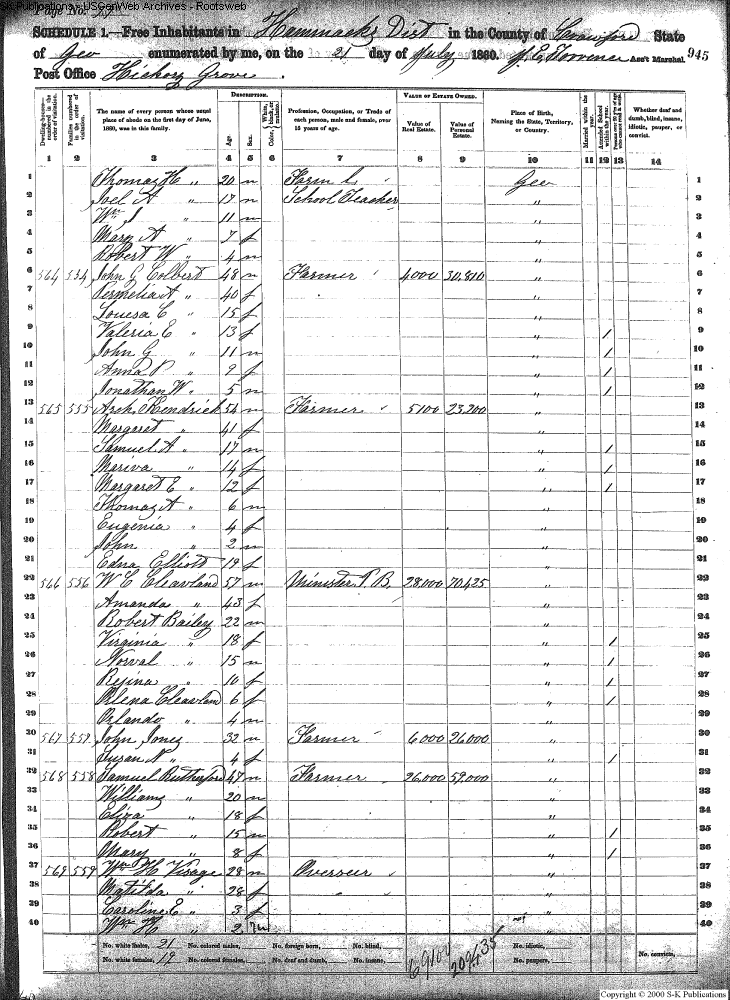 S-K Publications - USGenWeb Archives - Rootsweb
Page No.
SCHEDULE 1.—Free Inhabitants in Hammacks Dist in the County of Crawford State
of Geo enumerated by me, on the 21 day of July 1860. Ass't Marshal. 945
Post Office Hickory Grove.
DESCRIPTION. VALUE OF ESTATE OWNED.
Dwelling-houses—numbered in the order of visitation. Families numbered in the order of visitation. The name of every person whose usual place of abode on the first day of June, 1860, was in this family. Age. Sex. Color, White, black, or mulatto. Profession, Occupation, or Trade of each person, male and female, over 15 years of age. Value of Real Estate. Value of Personal Estate. Place of Birth, Naming the State, Territory, or Country. Married within the year. Attended School within the year. Persons over 20 y'rs of age who cannot read & write. Whether deaf and dumb, blind, insane, idiotic, pauper, or convict.
1 2 3 4 5 6 7 8 9 10 11 12 13 14
1 Thomas H " 20 m Farm L. Geo 1
2 Joel A " 17 m School Teacher " 2
3 Wm J " 11 m " 3
4 Mary A " 7 f " 4
5 Robert W " 4 m " 5
6 564 554 John G Colbert 48 m Farmer 4000 30,810 " 6
7 Permelia A " 40 f " 7
8 Louesa C " 15 f " 8
9 Valeria E " 13 f " / 9
10 John G " 11 m " / 10
11 Anna P " 9 f " / 11
12 Jonathan W " 5 m " / 12
13 565 555 Arch. Kendrick 54 m Farmer 5100 23,200 " 13
14 Margaret " 41 f " 14
15 Samuel A " 17 m " / 15
16 Mariva " 14 f " / 16
17 Margaret E " 12 f " / 17
18 Thomas A " 6 m " 18
19 Eugenia " 4 f " 19
20 John " 2 m " 20
21 Edna Elliott 19 f " 21
22 566 556 W C Cleavland 57 m Minister P. B. 28,000 70,425 " 22
23 Amanda " 43 f " 23
24 Robert Bailey 22 m " 24
25 Virginia " 18 f " / 25
26 Norval " 15 m " / 26
27 Rejina " 10 f " / 27
28 Orlena Cleavland 6 f " / 28
29 Orlando " 4 m " 29
30 567 557 John Jones 32 m Farmer 6000 26,000 " 30
31 Susan N " 4 f " / 31
32 568 558 Samuel Rutherford 47 m Farmer 26,000 59,000 " 32
33 Williams " 20 m " 33
34 Eliza " 18 f " 34
35 Robert " 15 m " / 35
36 Mary " 8 f " / 36
37 569 559 Wm H Visage 28 m Overseer " 37
38 Matilda " 28 f " 38
39 Caroline E " 3 f " 39
40 Wm H " 2 m " 40
No. white males, 21 No. colored males, No. foreign born, No. blind, 69100 209435 No. idiotic,
No. white females, 19 No. colored females, No. deaf and dumb, No. insane, No. paupers, No. convicts,
Copyright © 2000 S-K Publications